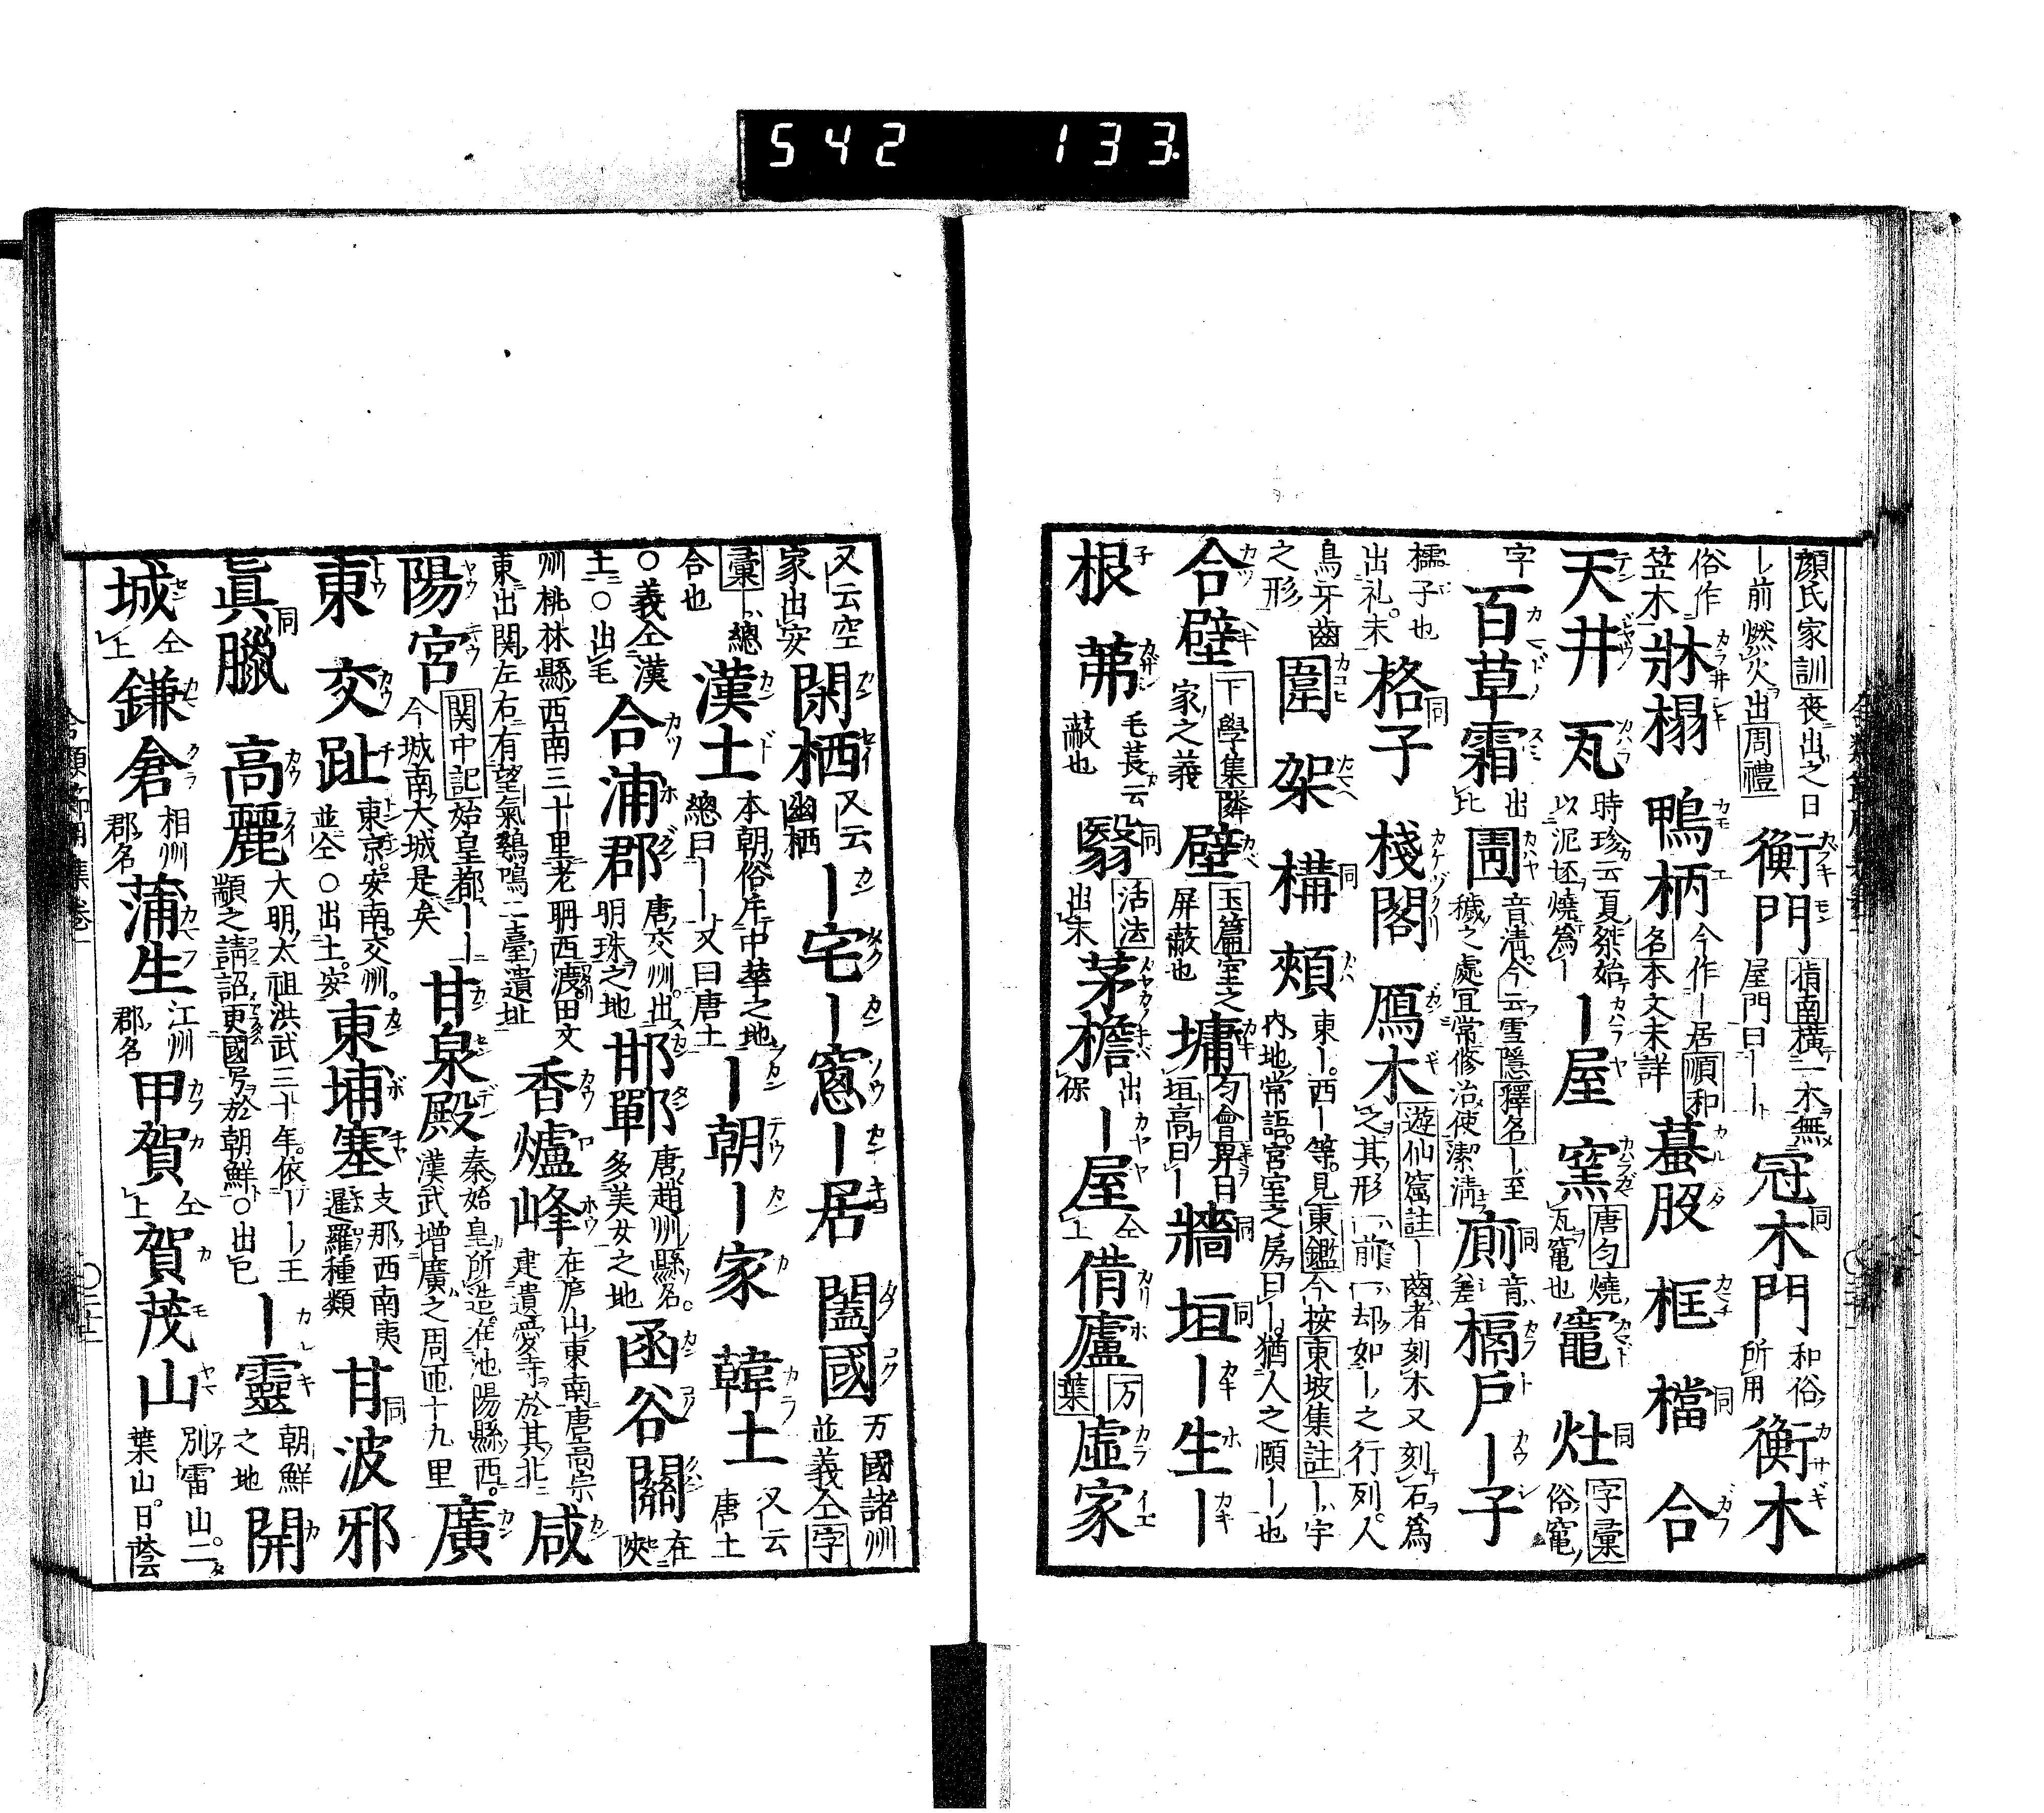 542 133.
顔氏家訓喪出之日
ー前燃火出周禮
衡門指南横一木無
屋門曰ーー
冠木門和俗
所用
衡木
俗作
笠木
牀榻 鴨柄今作ー居順和
名本文未詳
蟇股 框 檔 合
天井 瓦時珍云夏桀始
以泥坯燒為ー
ー屋 窯唐匀燒
瓦竈也
竈 灶字彙
俗竈
字
百草霜出
圊音清今云雪隱釋名ー至
穢之處宜常修治使潔清
廁音
差
槅戸 ー子
檽子也
出礼末
格子 棧閣 鴈木遊仙窟註ー齒者刻木又刻石為
之其形前却如ー之行列人
鳥牙齒
之形
圍 架 構 頰東ー西ー等見東鑑今按東坡集註ー宇
内地常語宮室之房曰ー猶人之頤ー也
合壁下學集隣
家之義
壁玉篇室之
屏蔽也
墉匀會
垣高曰ー
牆 垣 ー生ー
根 茀毛萇云
蔽也
翳活法
出末
茅檐出
保
ー屋仝
上
借廬万
葉
虛家
又云空
家出安
閑栖又云
幽栖
ー宅 ー窻 ー居 闔國万國諸州
並義仝字
彙ー總
合也
漢土本朝俗斥中華之地
總曰ーー又曰唐土
ー朝 ー家 韓土又云
唐土
○義仝漢
土○出毛
合浦郡唐交州出
明珠之地
邯鄲唐趙州縣名
多美女之地
函谷關在
陝
州桃林縣西南三十里老聃西渡田文
東出関左右有望氣鷄鳴二臺遺址
香爐峰在庐山東南唐高宗
建遺愛寺於其北
咸
陽宮関中記始皇都ーー
今城南大城是矣
甘泉殿秦始皇所造在池陽縣西
漢武增廣之周匝十九里
廣
東 交趾東京安南交州
並仝○出土安
東埔寨支那西南夷
暹羅種類
甘波邪
眞臘 高麗大明太祖洪武三十年依ーー王
顓之請詔更國号於朝鮮○出包
ー靈朝鮮
之地
開
城仝
上
鎌倉相州
郡名
蒲生江州
郡名
甲賀仝
上
賀茂山別雷山二
葉山日蔭